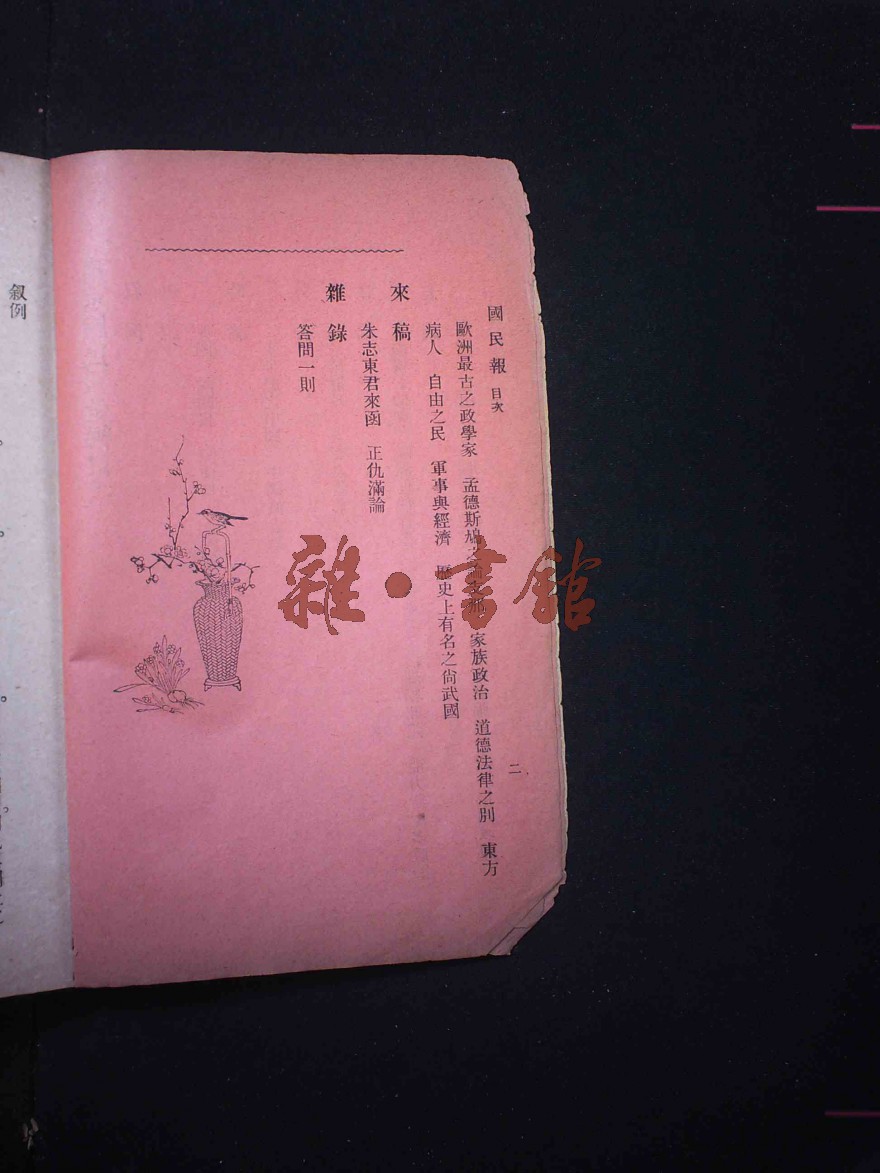 國民報 目次
二
歐洲最古之政學家 孟德斯鳩之 家族政治 道德法律之別 東方
病人 自由之民 軍事與經濟 歷史上有名之尙武國
來稿
朱志東君來函 正仇滿論
雜錄
答問一則
敍例
雜·書館